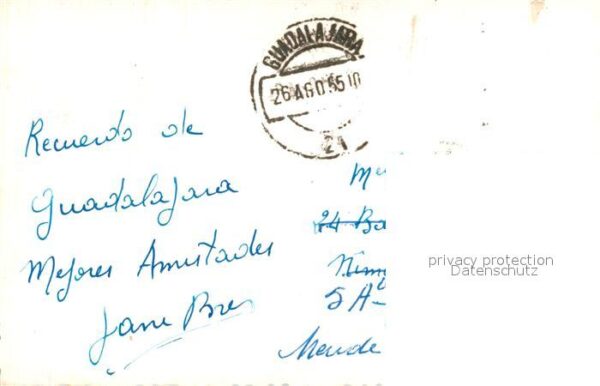 GUADALAJARA
26 AGO 55 10
21
Recuerdo de
Guadalajara
Mejores Amistades
24 Ba
5 A
Mende
privacy protection
Datenschutz